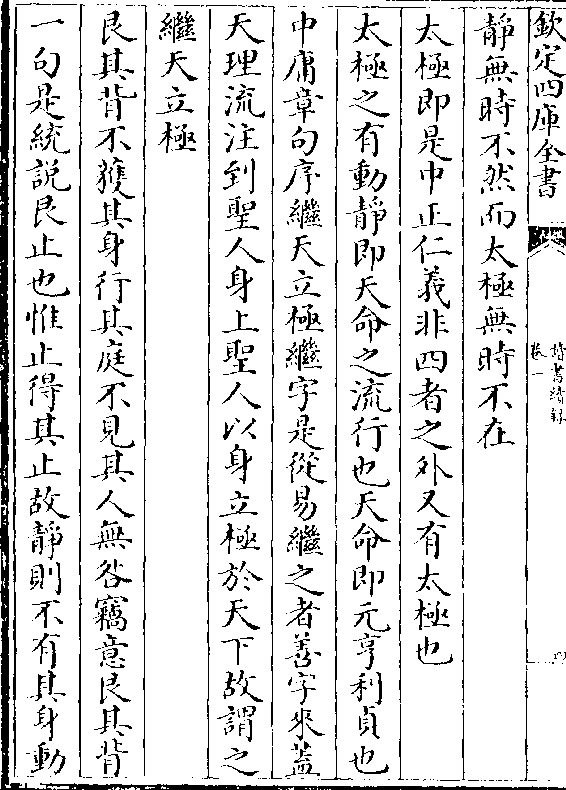 欽定四庫全書
讀書續錄
卷一
靜無時不然而太極無時不在
太極即是中正仁義非四者之外又有太極也
太極之有動靜即天命之流行也天命即元亨利貞也
中庸章句序繼天立極繼字是從易繼之者善字來蓋
天理流注到聖人身上聖人以身立極於天下故謂之
繼天立極
艮其背不獲其身行其庭不見其人無咎竊意艮其背
一句是統說艮止也惟止得其止故靜則不有其身動